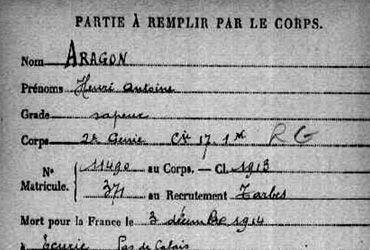 PARTIE À REMPLIR PAR LE CORPS.
Nom ARAGON
Prénoms Henri Antoine
Grade sapeur
Corps 2e Génie Cie 17.1 RG
No 11490 au Corps. — Cl. 1913
Matricule. 371 au Recrutement Tarbes
Mort pour la France le 3 décembre 1914
à Ecurie Pas de Calais